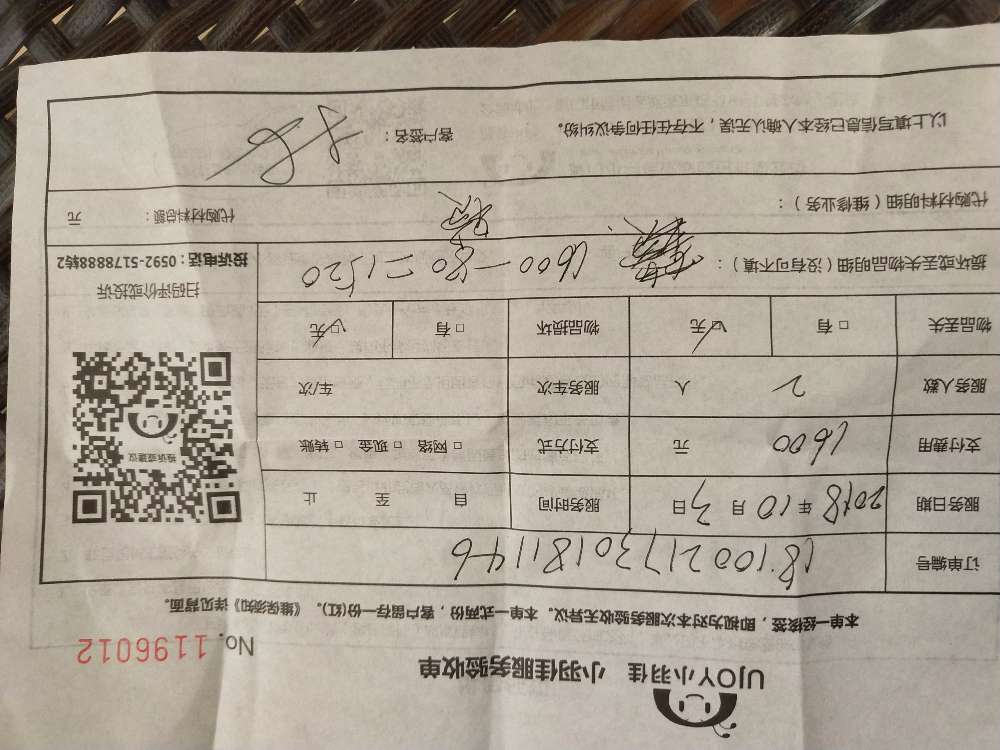 UJOY小羽佳 小羽佳服务验收单
No. 1196012
本单一经核签，即视为对本次服务验收无异议。本单一式两份，客户留存一份(红)。《维保须知》详见背面。
订单编号 1810021730181146
服务日期 2018年10月3日 服务时间 自 至 止
支付费用 1600 元 支付方式 □网络 □现金 □转账
服务人数 2 人 服务车次 车/次
物品丢失 □有 ☑无 物品损坏 □有 ☑无
损坏或丢失物品明细（没有可不填）： 1600-80=1520
投诉或建议
扫码评价或投诉
投诉电话：0592-5178888转2
代购材料明细（维修业务）： 代购材料总额： 元
以上填写信息已经本人确认无误，不存在任何争议纠纷。 客户签名：